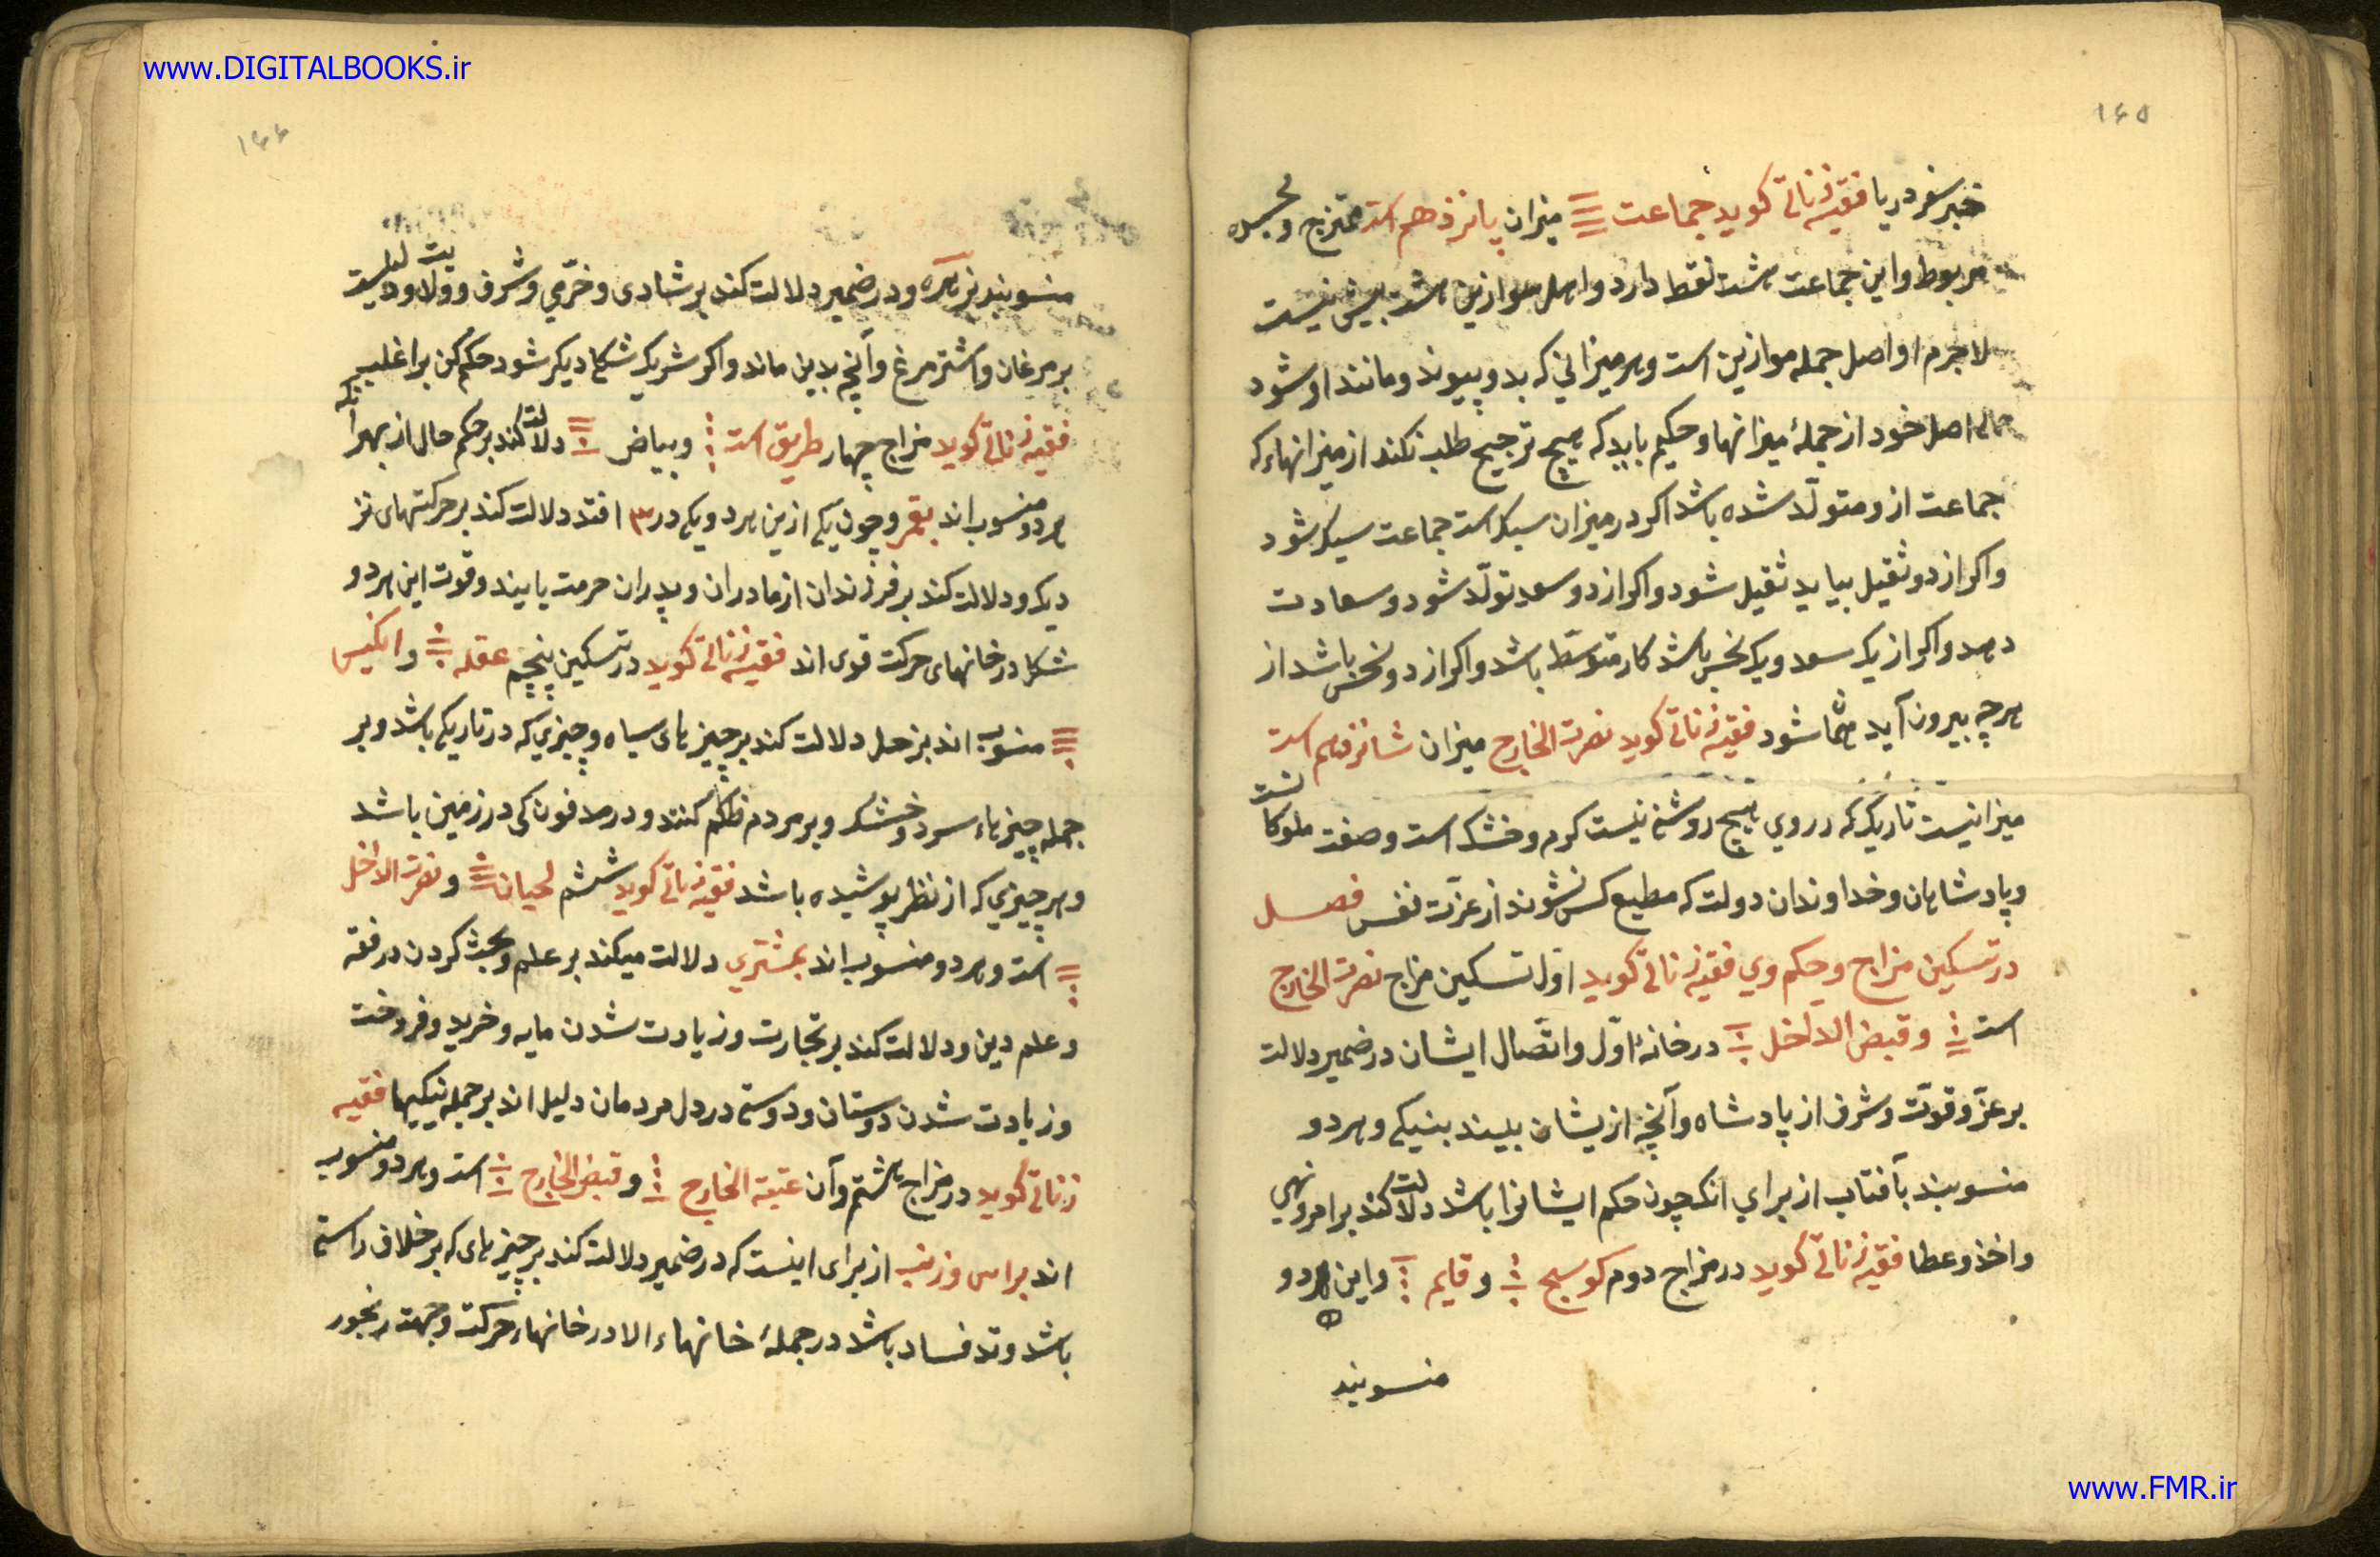 www.DIGITALBOOKS.ir
۱۶۵
خبر سفر دریا فقیه زناتی کوید جماعت میزان پانزدهم است ممتزج و
مربوط و این جماعت هشت نقطه دارد و اصل موازین هشت بیش نیست
لاجرم او اصل جمله موازین است و هر میزانی که بدو پیوند و مانند او شود
اصل خود از جملهٔ میزانها و حکیم باید که هیچ ترجیح طلب نکند از میزانهاء که
جماعت ازو متولّد شده باشد اکر در میزان سبک است جماعت سبک شود
و اکر از دو ثقیل بیاید ثقیل شود و اکر از دو سعد تولّد شود دو سعادت
دهد و اکر از یک سعد و یک نحس باشد کار متوسّط باشد و اکر از دو نحس باشد از
هرچه بیرون آید شود فقیه زناتی کوید نصرت الخارج میزان شانزدهم است
میزانیست تاریک که در روی هیچ روشنی نیست کرم و خشک است و صفت ملوکانست
و پادشاهان و خداوندان دولت که مطیع کس نشوند از عزّت نفس فصل
در تسکین مزاج و حکم وی فقیه زناتی کوید اوّل تسکین مزاج نصرت الخارج
است و قبض الداخل در خانهٔ اوّل و اتّصال ایشان در ضمیر دلالت
بر عزّ و قوّت و شرف از پادشاه و آنچه ازیشان بیند بنیکی و هر دو
منسوبند بآفتاب از برای انک چون حکم ایشانرا باشد دلالت کند بر امر و نهی
و اخذ و عطا فقیه زناتی کوید در مزاج دوم کوسج و قایم و این هر دو
منسوبند
۱۶۶
منسوبند بزهره و در ضمیر دلالت کند بر شادی و خرّمی و شرف و ولایت و دلیلست
بر مرغان و اشترمرغ و آنچه بدین ماند و اکر شریک شکل دیکر شود حکم کن بر اغلب
فقیه زناتی کوید مزاج چهار طریق است و بیاض دلالت کند بر حکم حال از بهر آنکه
هر دو منسوب اند بقمر و چون یکی ازین هر دو یکی در ۳ افتد دلالت کند بر حرکتهای نز
دیک و دلالت کند بر فرزندان از مادران و پدران حرمت یابند و قوت این هر دو
شکل در خانهای حرکت قوی اند فقیه زناتی کوید در تسکین پنجم عقله و انکیس
منسوب اند بزحل دلالت کند بر چیزهای سیاه و چیزی که در تاریکی باشد و بر
جمله چیزهاء سرد و خشک و بر مردم ظلم کنند و در مدفون کی در زمین باشد
و هر چیزی که از نظر پوشیده باشد فقیه زناتی کوید ششم لحیان و نصرت الداخل
است و هر دو منسوب اند بمشتری دلالت میکند بر علم و بحث کردن در فقه
و علم دین و دلالت کند بر تجارت و زیادت شدن مایه و خرید و فروخت
و زیادت شدن دوستان و دوستی در دل مردمان دلیل اند بر جمله نیکیها فقیه
زناتی کوید در مزاج هشتم و آن عتبة الخارج و قبض الخارج است و هر دو منسوب
اند براس و ذنب از برای اینست که در ضمیر دلالت کند بر چیزهای که بر خلاف راستی
باشد و تد فساد باشد در جملهٔ خانهاء الا در خانهاء حرکت و جهت رنجور
www.FMR.ir